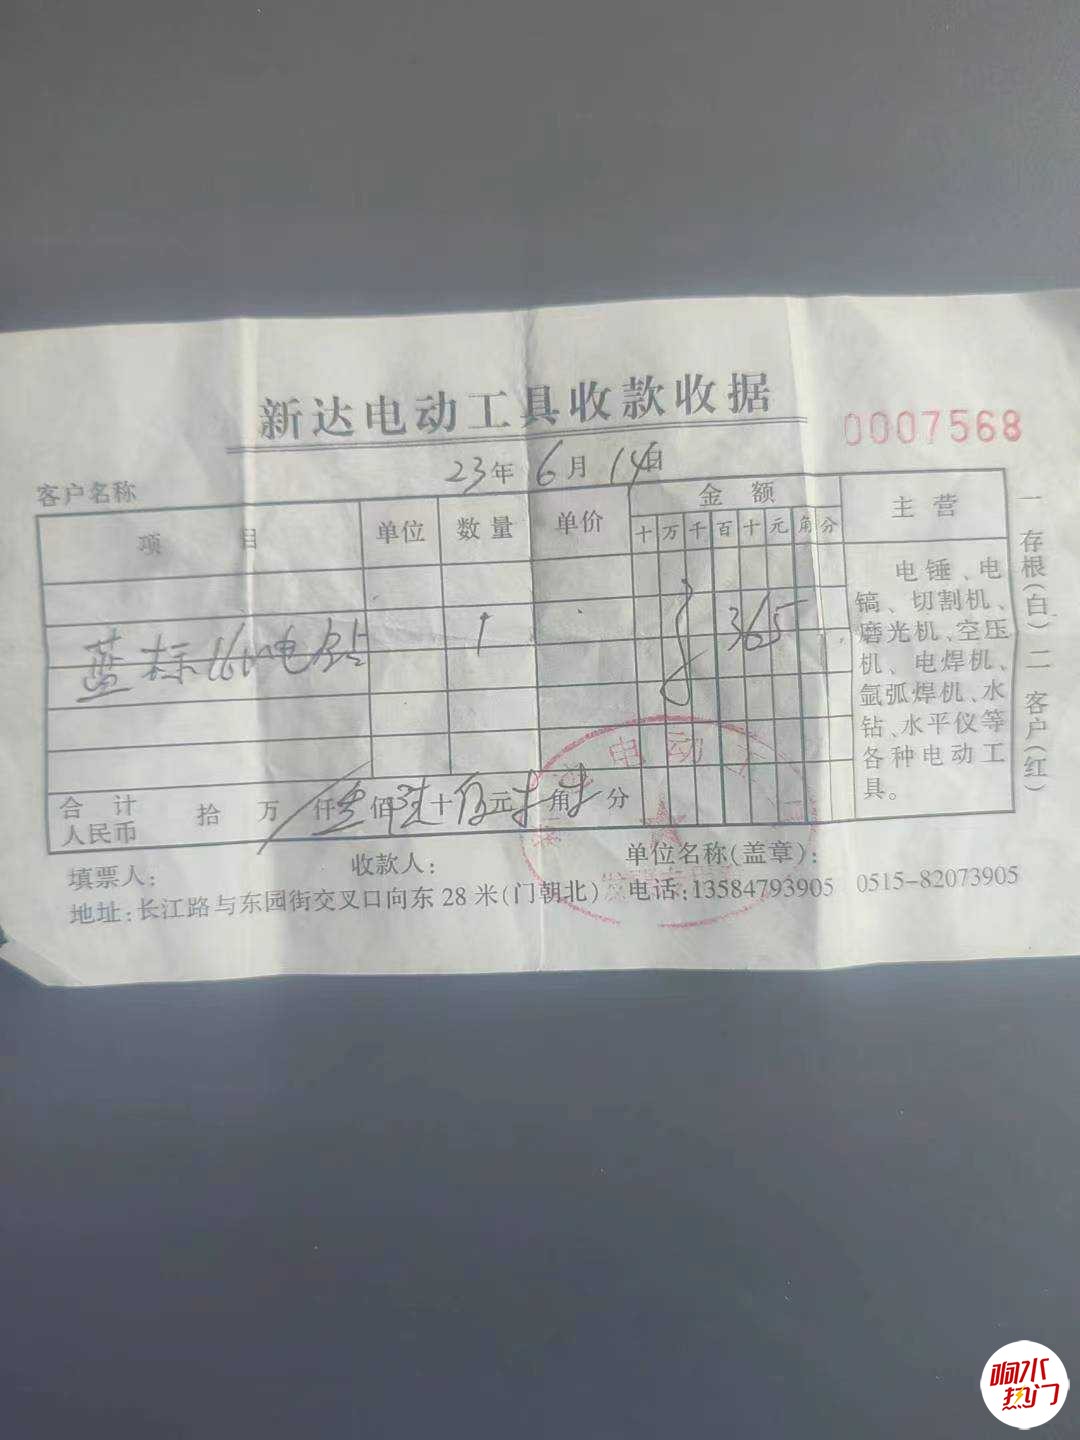 新达电动工具收款收据
0007568
23年6月14日
客户名称
项 目 单位 数量 单价 金额 主营
十万千百十元角分
蓝标16mm电钻 1 365
电锤、电
镐、切割机、
磨光机、空压
机、电焊机、
氩弧焊机、水
钻、水平仪等
各种电动工
具。
一存根(白)二客户(红)
合计
人民币 拾 万 仟 佰 十 伍元 角 分
填票人: 收款人: 单位名称(盖章):
地址:长江路与东园街交叉口向东28米(门朝北) 电话:13584793905 0515-82073905
电动
响水
热门